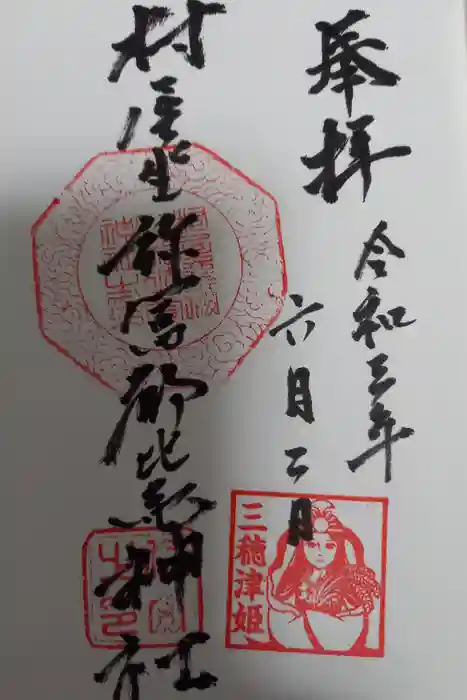 奉拝
令和三年
六月二日
村屋坐弥冨都比売神社
三穂津姫